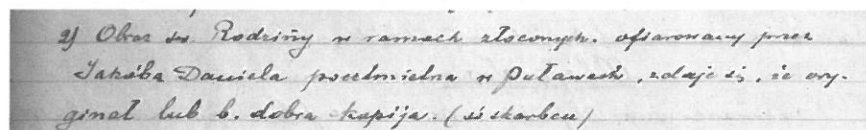 2) Obraz św. Rodziny w ramach złoconych. ofiarowany przez
Jakóba Daniela pocztmistrza w Puławach, zdaje się, że ory-
ginał lub b. dobra kopija. (w skarbcu)